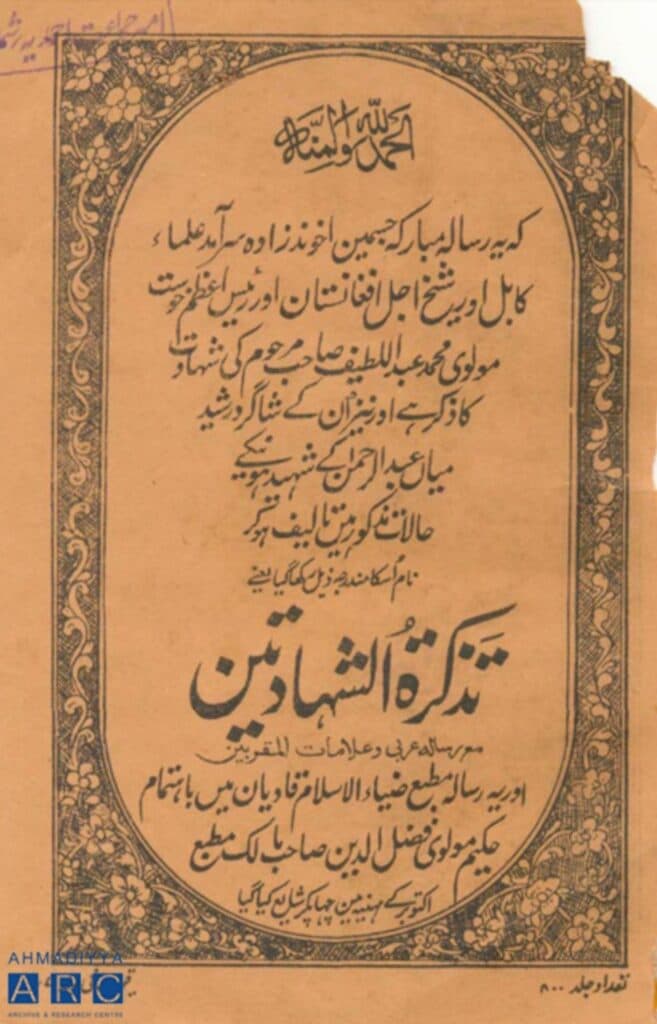 الحمد للہ والمنۃ
کہ یہ رسالہ مبارکہ جسمین اخوندزادہ سرآمد علماء
کابل اور شیخ اجل افغانستان اور رئیس اعظم خوست
مولوی محمد عبد اللطیف صاحب مرحوم کی شہادت
کا ذکر ہے اور نیز ان کے شاگرد رشید
میاں عبد الرحمن کے شہید ہونیکے
حالات مذکور ہیں تالیف ہو کر
نام اُسکا مندرجہ ذیل رکھا گیا یعنے
تذکرۃ الشہادتین
مع رسالہ عربی و علامات المقربین
اور یہ رسالہ مطبع ضیاء الاسلام قادیان میں باہتمام
حکیم مولوی فضل الدین صاحب مالک مطبع
اکتوبر کے مہینہ مین چھاپکر شایع کیا گیا
تعداد جلد ۸۰۰
AHMADIYYA
ARC
ARCHIVE & RESEARCH CENTRE